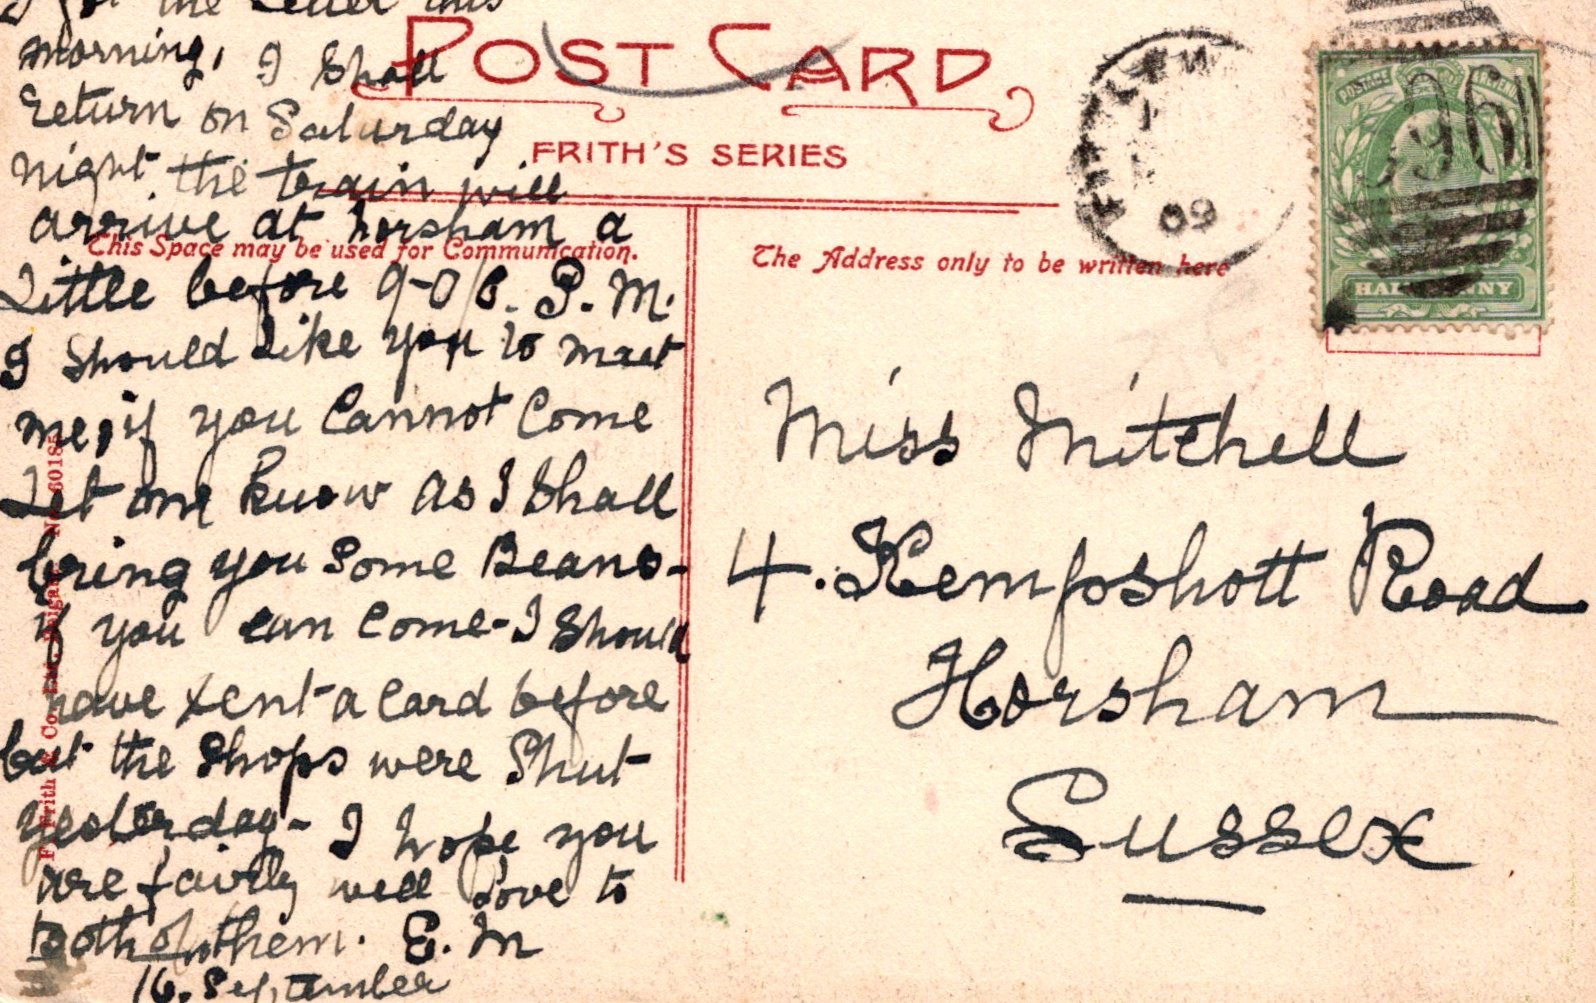 I got the Letter this
morning, I Shall
return on Saturday
night. the train will
arrive at horsham a
Little before 9-O/C. P.M.
I Should Like you to meet
me, if you Cannot Come
Let me know as I Shall
bring you Some Beans-
if you can Come-I Should
have sent-a Card before
but the Shops were Shut
yesterday- I hope you
are fairly well Love to
both of them. E. M
16. September
POST CARD
FRITH'S SERIES
This Space may be used for Communication.
The Address only to be written here
Miss Mitchell
4. Kempshott Road
Horsham
Sussex
09
396
POSTAGE
HALFPENNY
F. Frith & Co. Ltd. Reigate No. 60185